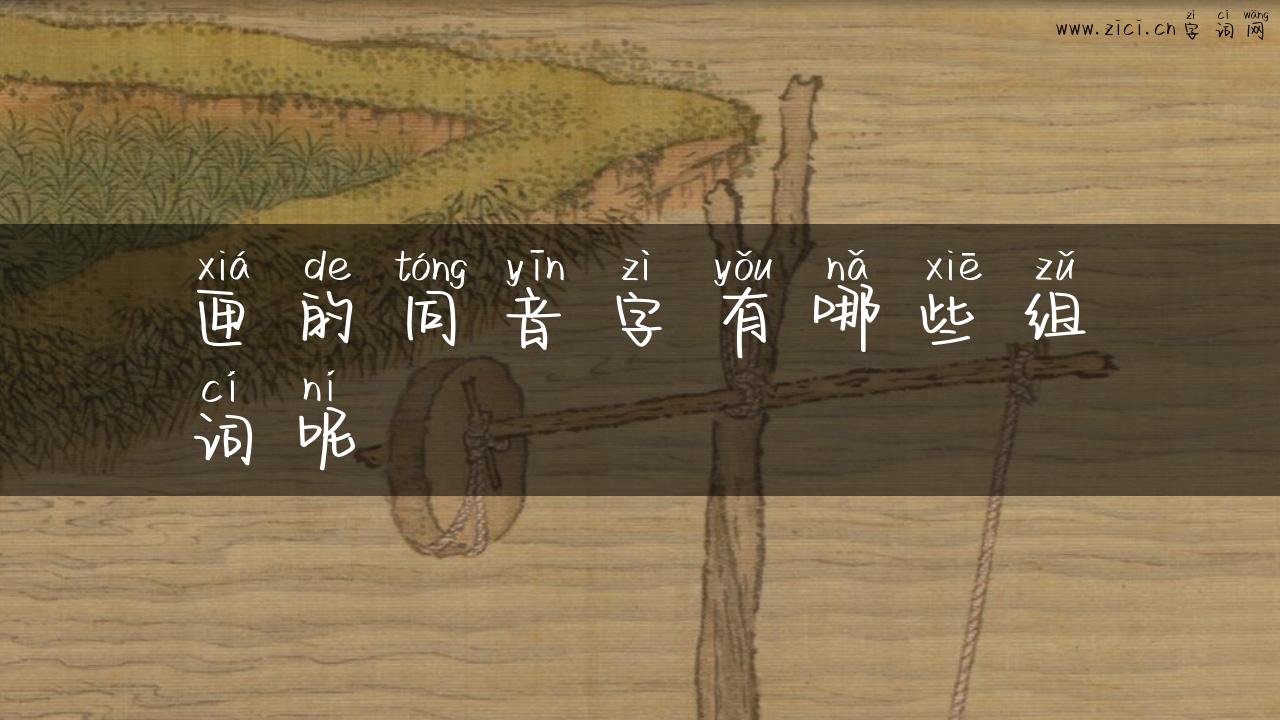 zì cí wǎng
www.zici.cn 字词网
xiá de tóng yīn zì yǒu nǎ xiē zǔ
匣的同音字有哪些组
cí ní
词呢